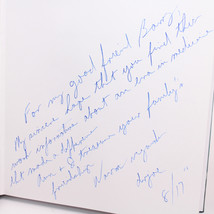 For my good friend Barry,
My sincere hope that you find this
work informative about an era in medicine
that made a difference
Love & I treasure your family's
friendship
Warm regards
8/17